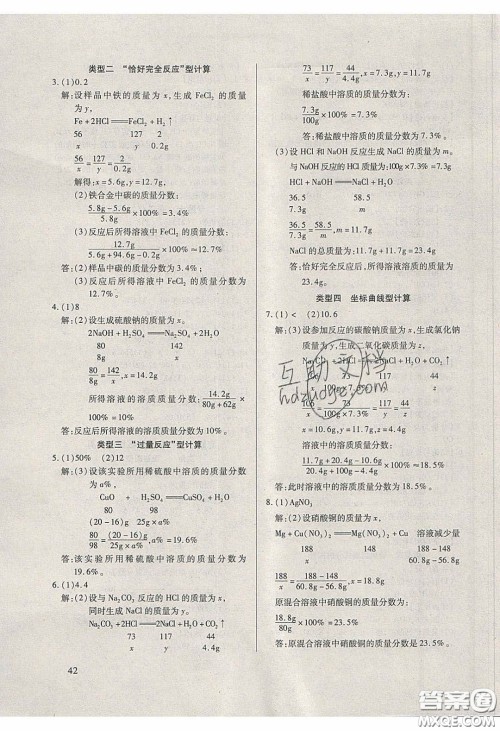 类型二 “恰好完全反应”型计算
3. (1)0.2
解:设样品中铁的质量为 x,生成 FeCl₂ 的质量
为 y,
Fe+2HCl══FeCl₂+H₂↑
56 127 2
x y 0.2g
56/x=127/y=2/0.2g
解得:x=5.6g,y=12.7g,
(2)铁合金中碳的质量分数:
(5.8g-5.6g)/5.8g×100%≈3.4%,
(3)反应后所得溶液中 FeCl₂ 的质量分数:
12.7g/(5.6g+94.6g-0.2g)×100%≈12.7%
答:(2)样品中碳的质量分数为 3.4%;
(3)反应后所得溶液中 FeCl₂ 的质量分数为
12.7%。
4. (1)8
解:(2)设生成硫酸钠的质量为 x。
2NaOH+H₂SO₄══Na₂SO₄+2H₂O
80 142
8g x
80/8g=142/x x=14.2g
所得溶液的溶质质量分数:14.2g/(80g+62g)×
100%=10%
答:反应后所得溶液中溶质的质量分数为 10%。
类型三 “过量反应”型计算
5. (1)50% (2)12
(3)设该实验所用稀硫酸中溶质的质量分数
为 a%,
CuO + H₂SO₄══CuSO₄+H₂O
80 98
(20-16)g a%
80/98=(20-16)g/a%,a%≈19.6%。
答:该实验所用稀硫酸中溶质的质量分数为
19.6%。
6. (1)4.4
解:(2)设与 Na₂CO₃ 反应的 HCl 的质量为 x,
同时生成 NaCl 的质量为 y。
Na₂CO₃+2HCl══2NaCl+H₂O+CO₂↑
73 117 44
x y 4.4g
73/x=117/y=44/4.4g,x=7.3g,y=11.7g
稀盐酸中溶质的质量分数为:
7.3g/100g×100%=7.3%
答:稀盐酸中溶质的质量分数为 7.3%。
(3)设 HCl 和 NaOH 反应生成 NaCl 的质量为 m。
与 NaOH 反应的 HCl 的质量为:100g×7.3%=7.3g
HCl+NaOH══NaCl+H₂O
36.5 58.5
7.3g m
36.5/7.3g=58.5/m,m=11.7g
NaCl 的总质量为:11.7g+11.7g=23.4g
答:恰好完全反应后,溶液中 NaCl 的质量为
23.4g。
类型四 坐标曲线型计算
7. (1)< (2)10.6
解:(3)设参加反应的碳酸钠质量为 x,生成氯化钠
质量为 y,生成二氧化碳质量为
Na₂CO₃+2HCl══2NaCl+H₂O+CO₂↑
73 117 44
溶液中的溶质的质量分数:
×100%≈18.5%
答:此时溶液中溶质的质量分数为 18.5%。
8. (1)AgNO₃
解:(2)设硝酸铜的质量为 x,
Mg+Cu(NO₃)₂══Mg(NO₃)₂+Cu 溶液减少量
188
188-148
x
188/x=
x=18.8g
原混合溶液中硝酸铜的质量分数为:
18.8g/80g×100%=23.5%
答:原混合溶液中硝酸铜的质量分数是 23.5%。
42
互助文档
hdzuoyezs.com
答案圈
MXQE.COM